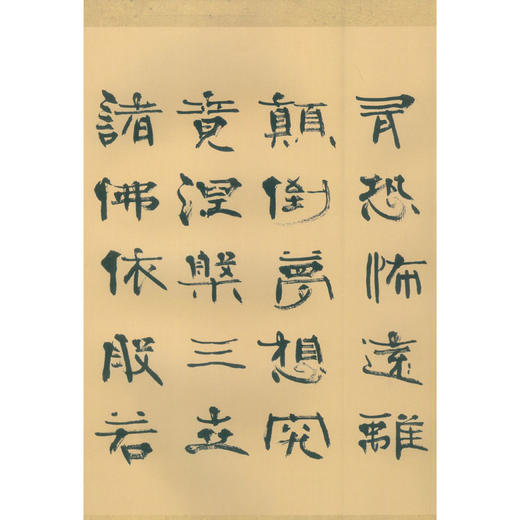 有恐怖遠離
顛倒夢想究
竟涅槃三世
諸佛依般若